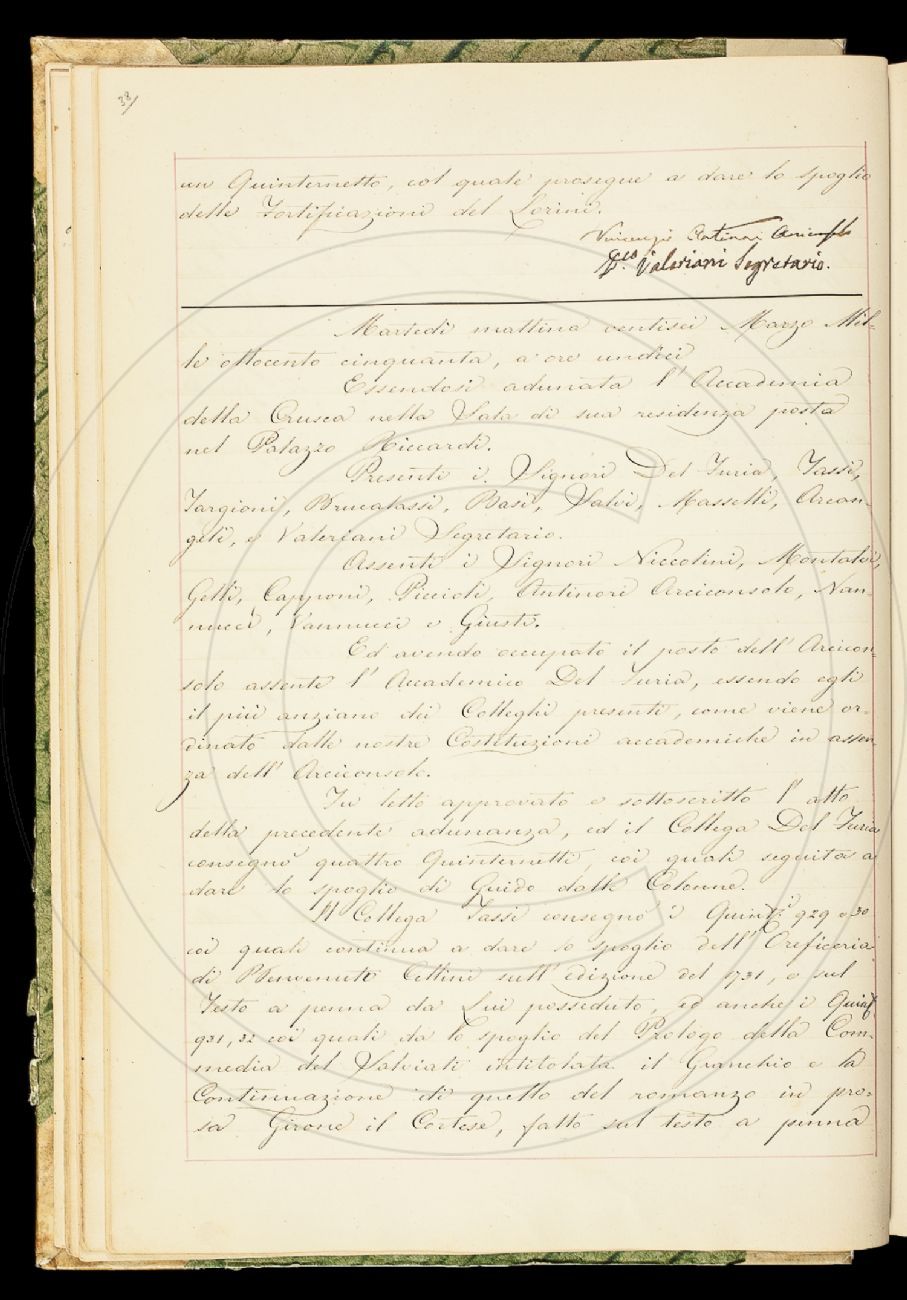 38/
un Quinternetto, col quale prosegue a dare lo spoglio
delle Fortificazioni del Lorini.
Vincenzio Antinori Arciconsolo
Fco. Valeriani Segretario.
Martedì mattina ventisei Marzo Mil-
le ottocento cinquanta, a ore undici
Essendosi adunata l' Accademia
della Crusca nella Sala di sua residenza posta
nel Palazzo Riccardi.
Presenti i Signori Del Furia, Tassi,
Targioni, Brucalassi, Basi, Salvi, Masselli, Arcan-
geli, e Valeriani Segretario.
Assenti i Signori Niccolini, Montalvi,
Gelli, Capponi, Piccioli, Antinori Arciconsolo, Nan-
nucci, Vannucci e Giusti.
Ed avendo occupato il posto dell' Arcicon-
solo assente l' Accademico Del Furia, essendo egli
il più anziano dei Colleghi presenti, come viene or-
dinato dalle nostre Costituzioni accademiche in assen-
za dell' Arciconsolo.
Fu letto approvato e sottoscritto l' atto
della precedente adunanza, ed il Collega Del Furia
consegnò quattro Quinternetti, coi quali seguita a
dare lo spoglio di Guido dalle Colonne.
Il Collega Tassi consegnò i Quint.i 929 e 30
coi quali continua a dare lo spoglio dell' Oreficeria
di Benvenuto Cellini sull' edizione del 1731, e sul
Testo a penna da Lui posseduto, ed anche i Quint.
931, 32 coi quali dà lo spoglio del Prologo della Com-
media del Salviati intitolata il Granchio e la
Continuazione di quello del romanzo in pro-
sa Girone il Cortese, fatto sul testo a penna